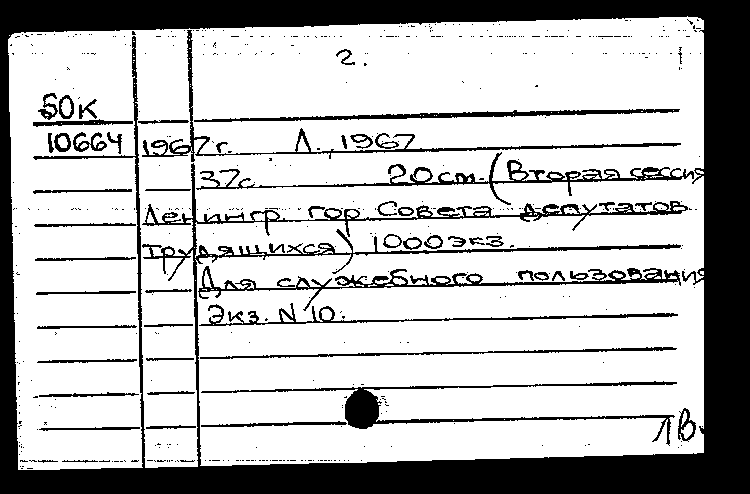 2.
БОК
10664 1967г. Л., 1967
37с. 20см. (Вторая сессия
Ленингр. гор Совета депутатов
трудящихся) 1000экз.
Для служебного пользования
Экз. N 10.
1В.